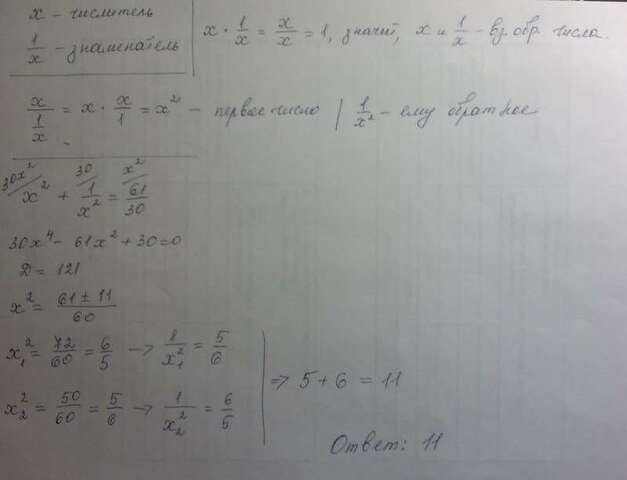 x - числитель
1/x - знаменатель
x · 1/x = x/x = 1, значит, x и 1/x - вз. обр. числа.
x/(1/x) = x · x/1 = x² - первое число | 1/x² - ему обратное
30x²/ x² + 30/ 1/x² = x²/ 61/30
30x⁴ - 61x² + 30 = 0
D = 121
x² = (61 ± 11)/60
x₁² = 72/60 = 6/5 → 1/x₁² = 5/6
x₂² = 50/60 = 5/6 → 1/x₂² = 6/5
⇒ 5 + 6 = 11
Ответ: 11